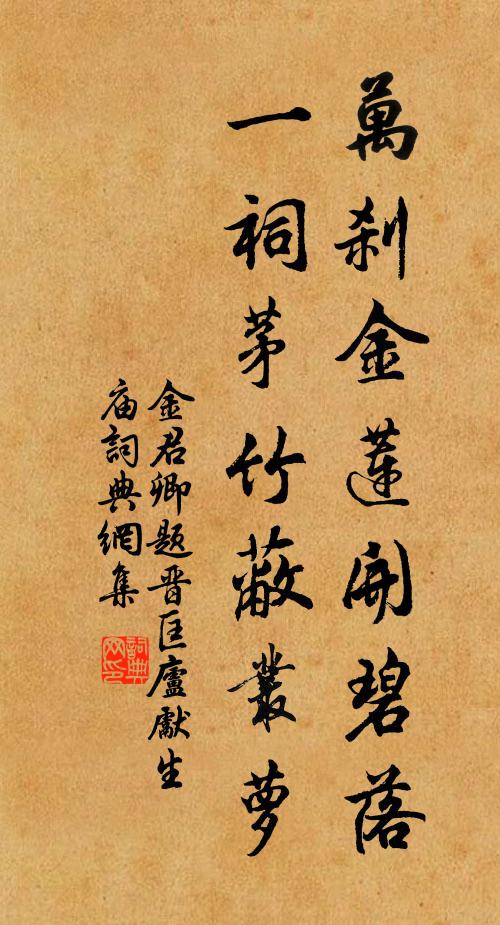 萬刹金蓮開碧落
一祠茅竹蔽叢蘿
金君卿題晋匡廬獻生
庙詞典網集
詞典
网印